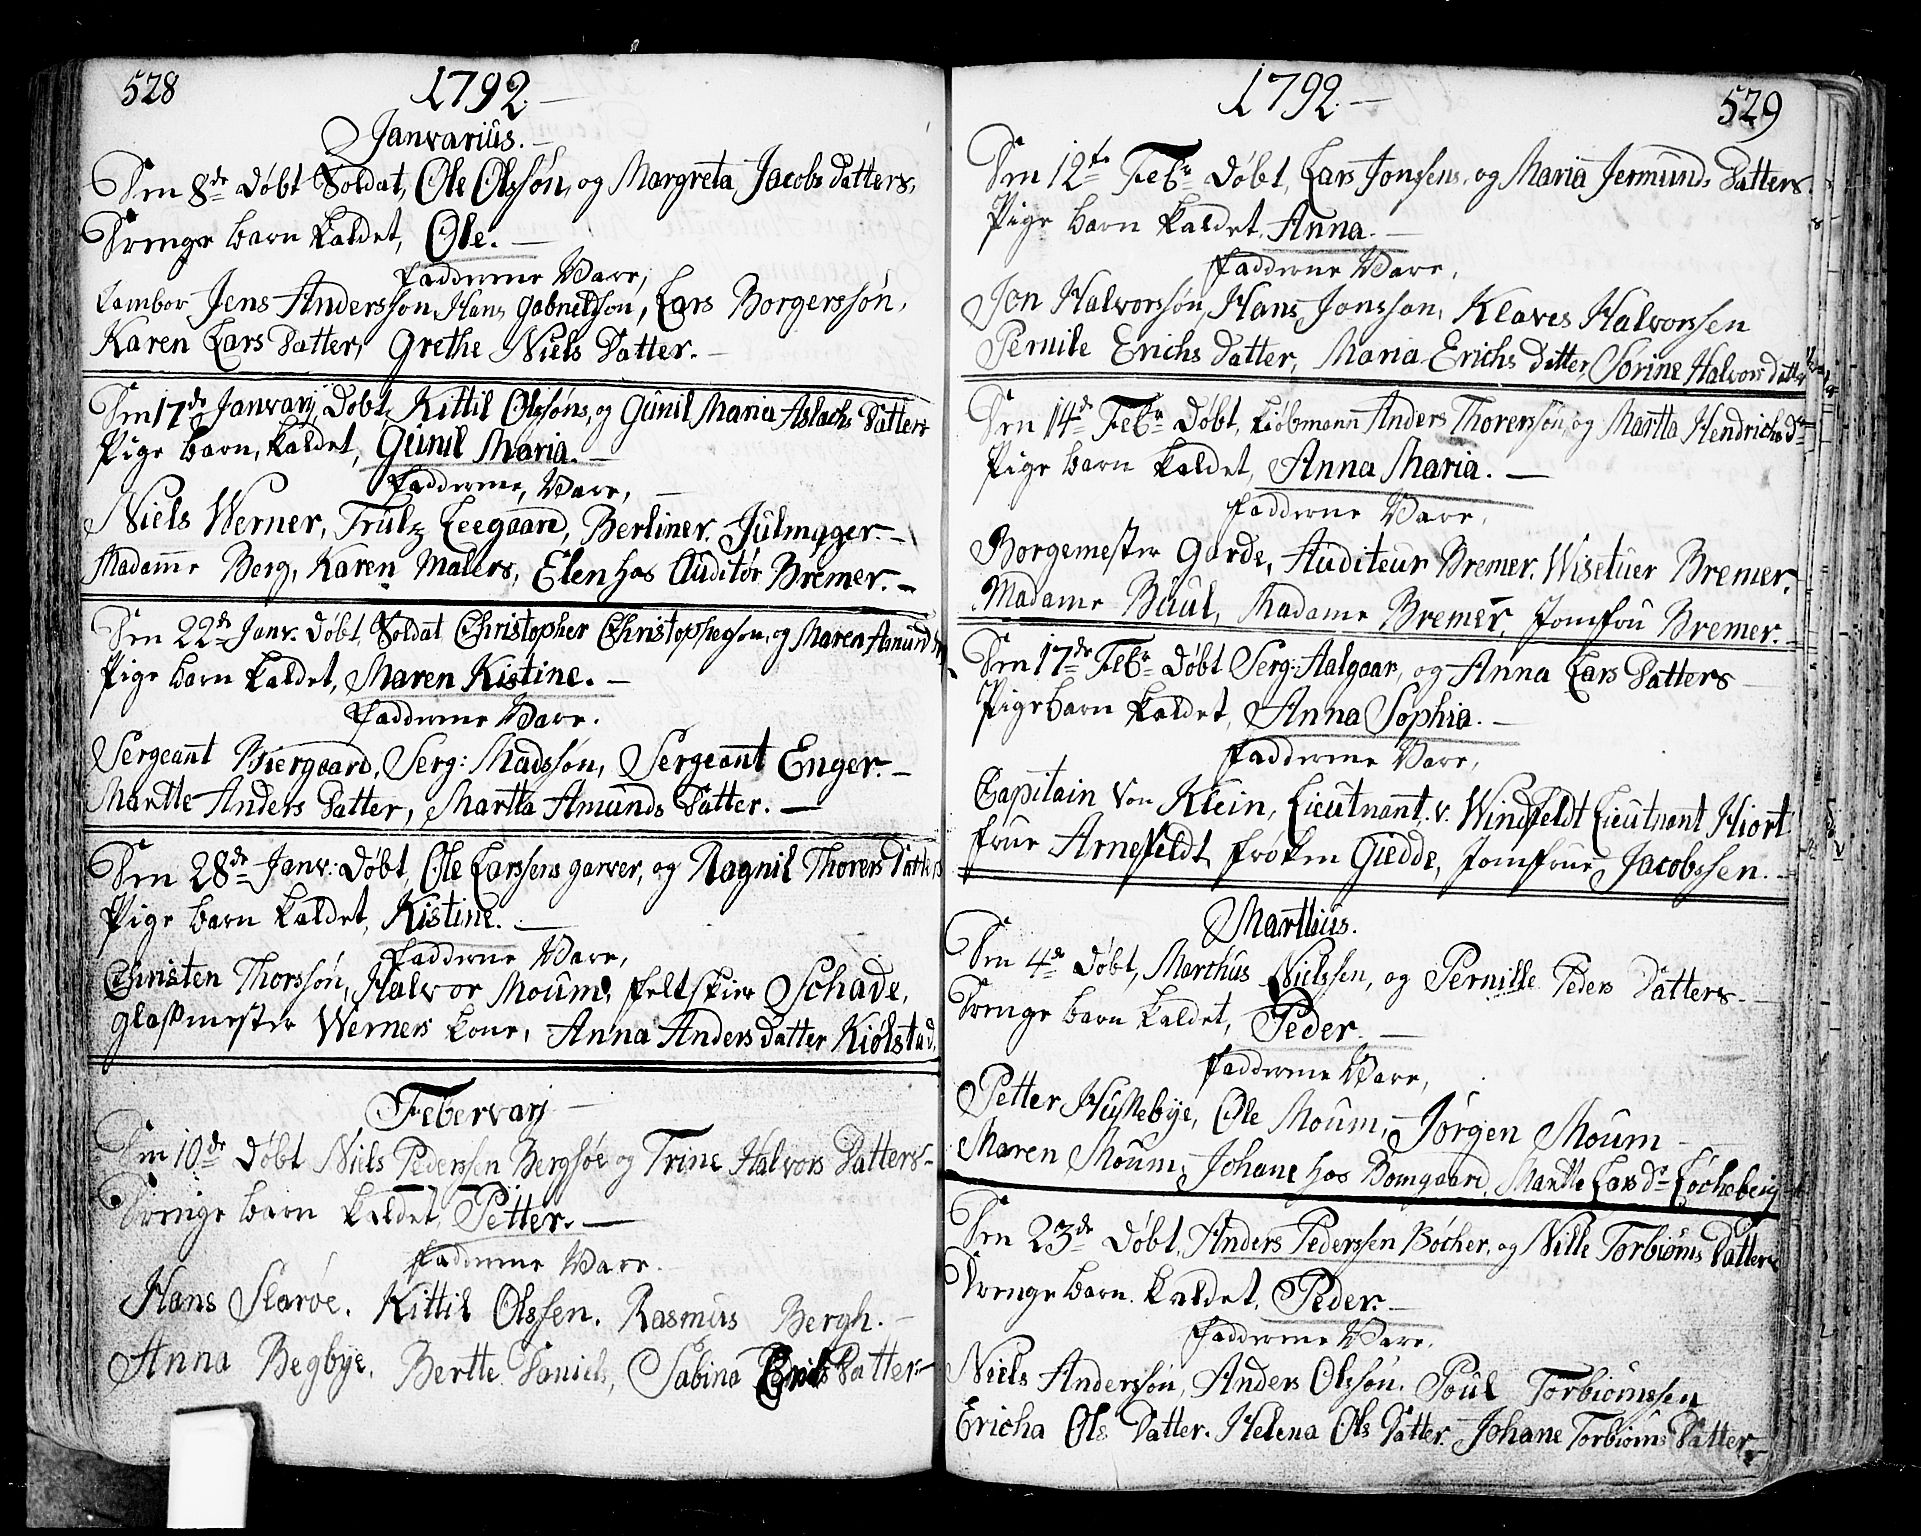 528
1792.
Janvarius.
Den 8de Døbt Soldat, Ole Olssøn, og Margreta Jacobs datters,
Drenge barn kaldet, Ole.
Fadderne Vare,
Tambor Jens Anderssøn, Hans Gabrielsøn, Lars Borgerssøn,
Karen Lars Datter, Grethe Niels Datter.
Den 17de Janvarij Døbt, Kittil Olssøns, og Gunil Maria Aslachs Datters
Pige barn, kaldet, Gunil Maria.
Fadderne, Vare,
Niels Werner, Trulz Leegaard, Berliner, Julmyger.
Madame Berg, Karen Malers, Elen hos Auditør Bremer.
Den 22de Janv. Døbt, Soldat Christopher Christophersøn, og Maren Asmunds
Pige barn kaldet, Maren Kistine.
Fadderne Vare.
Sergeant Biergaard, Serg: Madssøn, Sergeant Enger.
Marthe Anders Datter, Martta Amunds Datter.
Den 28de Janv: Døbt, Ole Larssens garver, og Ragnil Thorers Datters
Pige barn kaldet, Kistine.
Fadderne Vare,
Christen Thorssøn, Halvor Moum, feltskier Schade,
Glassmester Werners kone, Anna Anders datter Kiølstad.
Febervarj
Den 10de Døbt Niels Pederssen Bergsøe og Trine Halvors Datters
Drenge barn kaldet, Petter.
Fadderne Vare.
Hans Slaroe. Kittil Olssen. Rasmus Bergh.
Anna Begbye. Berthe Daniels, Sabina Datter
1792.
529
Den 12te Febr Døbt, Lars Jonssens, og Maria Jermunds Datters
Pige barn kaldet, Anna.
Fadderne Vare,
Jon Halvorssøn, Hans Jonsson, Klaves Halvorssen
Pernile Erichs datter, Maria Erichs datter, Sorine Halvors datter
Den 14de Febr Døbt, kiøbmann Anders Thorerssøn, og Martta Hendrichs Dr
Pige barn kaldet, Anna Maria.
Fadderne Vare,
Borgemester Garde, Auditeur Bremer. Wisetuer Bremer,
Madame Buul, Madame Bremer, Jomfru Bremer.
Den 17de Febr Døbt Serg: Aalgaar, og Anna Lars Datters
Pigebarn kaldet, Anna Sophia.
Fadderne Vare,
Capitain Von Klein, Lieutnant. v. Windfeldt Lieutnant Hiort
Frue Arnefeldt, frøken Giedde, Jomfrue Jacobssen.
Marthius.
Den 4de Døbt, Marthus Nielssen, og Pernille Peders Datters
Drenge barn kaldet, Peder.
Fadderne Vare,
Petter Hussebye, Ole Moum, Jørgen Moum
Maren Moum, Johane hos Bomgaard, Marthe Lars dr Løcheberg
Den 23de Døbt, Anders Pederssen Bøcher, og Nille Torbiørns Datters
Drenge barn kaldet, Peder.
Fadderne Vare.
Niels Anderssøn, Anders Olssøn. Poul Torbiørnssen
Ericha Ols Datter. Helena Ols Datter. Johane Torbiørns Datter